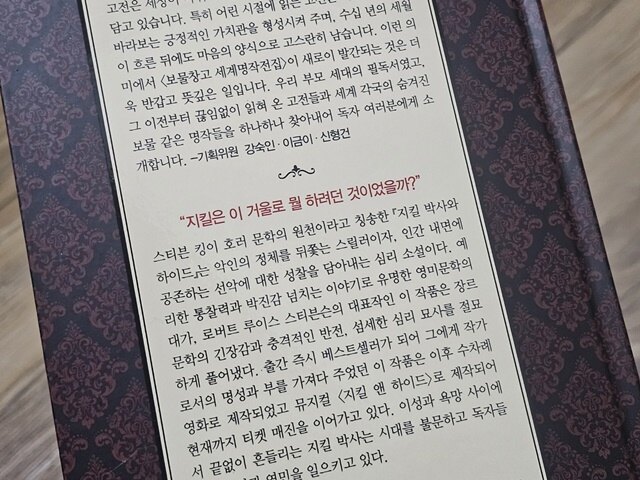 고전은 세상이
담고 있습니다. 특히 어린 시절에 읽은 고전은
바라보는 긍정적인 가치관을 형성시켜 주며, 수십 년의 세월
이 흐른 뒤에도 마음의 양식으로 고스란히 남습니다. 이런 의
미에서 〈보물창고 세계명작전집〉이 새로이 발간되는 것은 더
욱 반갑고 뜻깊은 일입니다. 우리 부모 세대의 필독서였고,
그 이전부터 끊임없이 읽혀 온 고전들과 세계 각국의 숨겨진
보물 같은 명작들을 하나하나 찾아내어 독자 여러분에게 소
개합니다. -기획위원 강숙인·이금이·신형건
“지킬은 이 거울로 뭘 하려던 것이었을까?”
스티븐 킹이 호러 문학의 원천이라고 칭송한 『지킬 박사와
하이드』는 악인의 정체를 뒤쫓는 스릴러이자, 인간 내면에
공존하는 선악에 대한 성찰을 담아내는 심리 소설이다. 예
리한 통찰력과 박진감 넘치는 이야기로 유명한 영미문학의
대가, 로버트 루이스 스티븐슨의 대표작인 이 작품은 장르
문학의 긴장감과 충격적인 반전, 섬세한 심리 묘사를 절묘
하게 풀어냈다. 출간 즉시 베스트셀러가 되어 그에게 작가
로서의 명성과 부를 가져다 주었던 이 작품은 이후 수차례
영화로 제작되었고 뮤지컬 〈지킬 앤 하이드〉로 제작되어
현재까지 티켓 매진을 이어가고 있다. 이성과 욕망 사이에
서 끝없이 흔들리는 지킬 박사는 시대를 불문하고 독자들
연민을 일으키고 있다.